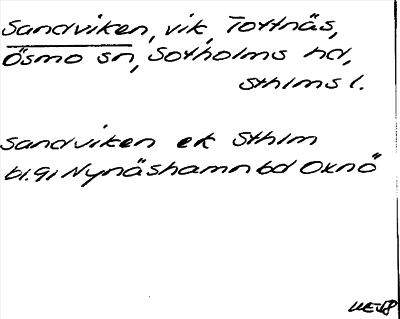 Sandviken, vik, Tottnäs,
Ösmo sn, Sotholms hd,
Sthlms l.
Sandviken ek Sthlm
bl. 91 Nynäshamn bd Oxnö